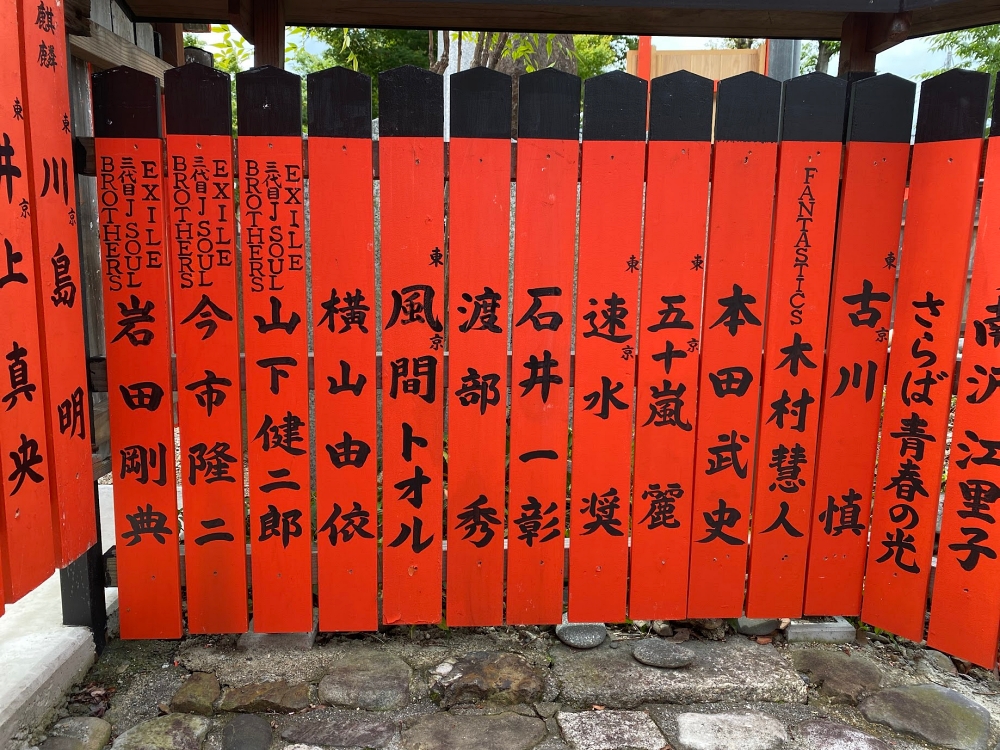 南沢江里子
さらば青春の光
東京
古川慎
FANTASTICS
木村慧人
本田武史
東京
五十嵐麗
東京
速水奨
石井一彰
渡部秀
東京
風間トオル
横山由依
EXILE
三代目J SOUL
BROTHERS
山下健二郎
EXILE
三代目J SOUL
BROTHERS
今市隆二
EXILE
三代目J SOUL
BROTHERS
岩田剛典
麒麟
東京
川島明
東京
井上真央